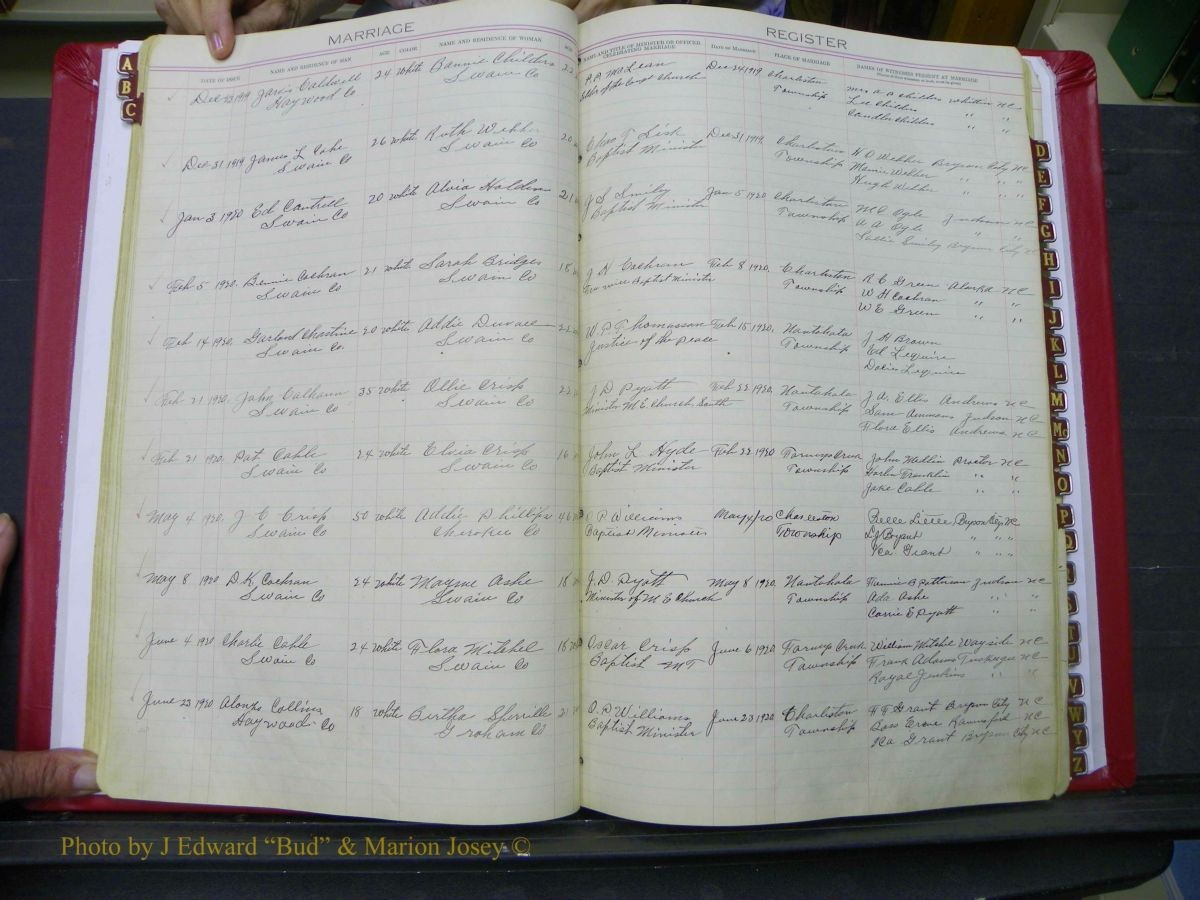 MARRIAGE
DATE OF ISSUE NAME AND RESIDENCE OF MAN AGE COLOR NAME AND RESIDENCE OF WOMAN AGE
Dec 23 1919 Jarvis Caldwell 24 White Bonnie Childers
Haywood Co Swain Co
Dec 31 1919 James L Cope 26 White Ruth Webber 20
Swain Co Swain Co
Jan 3 1920 Ed Cantrell 20 White Alvia Holden 21
Swain Co Swain Co
Feb 5 1920 Bennie Cochran 21 White Sarah Bridges 18
Swain Co Swain Co
Feb 14 1920 Garland Chastine 20 White Addie Duvall 22
Swain Co Swain Co
Feb 21 1920 John Calhoun 35 White Ollie Crisp 22
Swain Co Swain Co
Feb 21 1920 Pat Cable 24 White Elvia Crisp 16
Swain Co Swain Co
May 4 1920 J C Crisp 50 White Addie Phillips 46
Swain Co Cherokee Co
May 8 1920 D K Cochran 24 White Mayme Ashe 18
Swain Co Swain Co
June 4 1920 Charlie Cable 24 White Flora Mitchel 18
Swain Co Swain Co
June 23 1920 Alonzo Collins 18 White Bertha 21
Haywood Co Graham Co
REGISTER
NAME AND TITLE OF MINISTER OR OFFICER CELEBRATING MARRIAGE DATE OF MARRIAGE PLACE OF MARRIAGE NAMES OF WITNESSES PRESENT AT MARRIAGE
McLean Dec 24 1919 Charleston Mrs A A Childers Whittier N C
Church Township Lee Childers " "
Candler Childers " "
Chas T Lisk Dec 31 1919 Charleston W O Webber Bryson City N C
Baptist Minister Township Mamie Webber " " "
Hugh Webber " " "
J S Smiley Jan 5 1920 Charleston M C Ogle Judson N C
Baptist Minister Township A A Ogle " "
Smiley Bryson City N C
J H Cochran Feb 8 1920 Charleston R E Green Alarka N C
Free will Baptist Minister Township W H Cochran " "
W E Green " "
W P Thomasson Feb 15 1920 Nantahala J H Brown
Justice of the Peace Township Ed Lequire
Lequire
J D Pyatt Feb 22 1920 Nantahala J A Ellis Andrews N C
Minister M E Church South Township Sam Ammons Judson N C
Flora Ellis Andrews N C
John L Hyde Feb 22 1920 Forneys Creek John Wallin Proctor N C
Baptist Minister Township Franklin " "
Jake Cable " "
P Williams May 4/20 Charleston Belle Little Bryson City N C
Baptist Minister Township L J Bryant " " "
Ica Grant " " "
J. D. Pyatt May 8 1920 Nantahala Fannie B Patterson Judson N C
Minister of M E Church Township Ada Ashe " "
Carrie E Pyatt " "
Oscar Crisp June 6 1920 Forneys Creek William Mitchel Wayside N C
Baptist MT Township Frank Adams Tuskeegee N C
Royal Jenkins " "
O. P Williams June 23 1920 Charleston Grant Bryson City N C
Baptist Minister Township N C
Ica Grant Bryson City N C
A
B
C
D
E
F
G
H
I
J
K
L
M
Mc
N
O
P
Q
S
T
U
V
W
Y
Z
Photo by J Edward “Bud” & Marion Josey ©